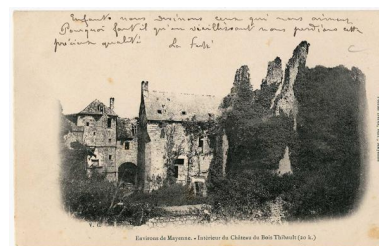 Enfants nous devinons ceux qui nous aiment
Pourquoi faut il qu'en vieillissant nous perdions cette
précieuse qualité
Environs de Mayenne. - Intérieur du Château du Bois Thibault (20 k.)